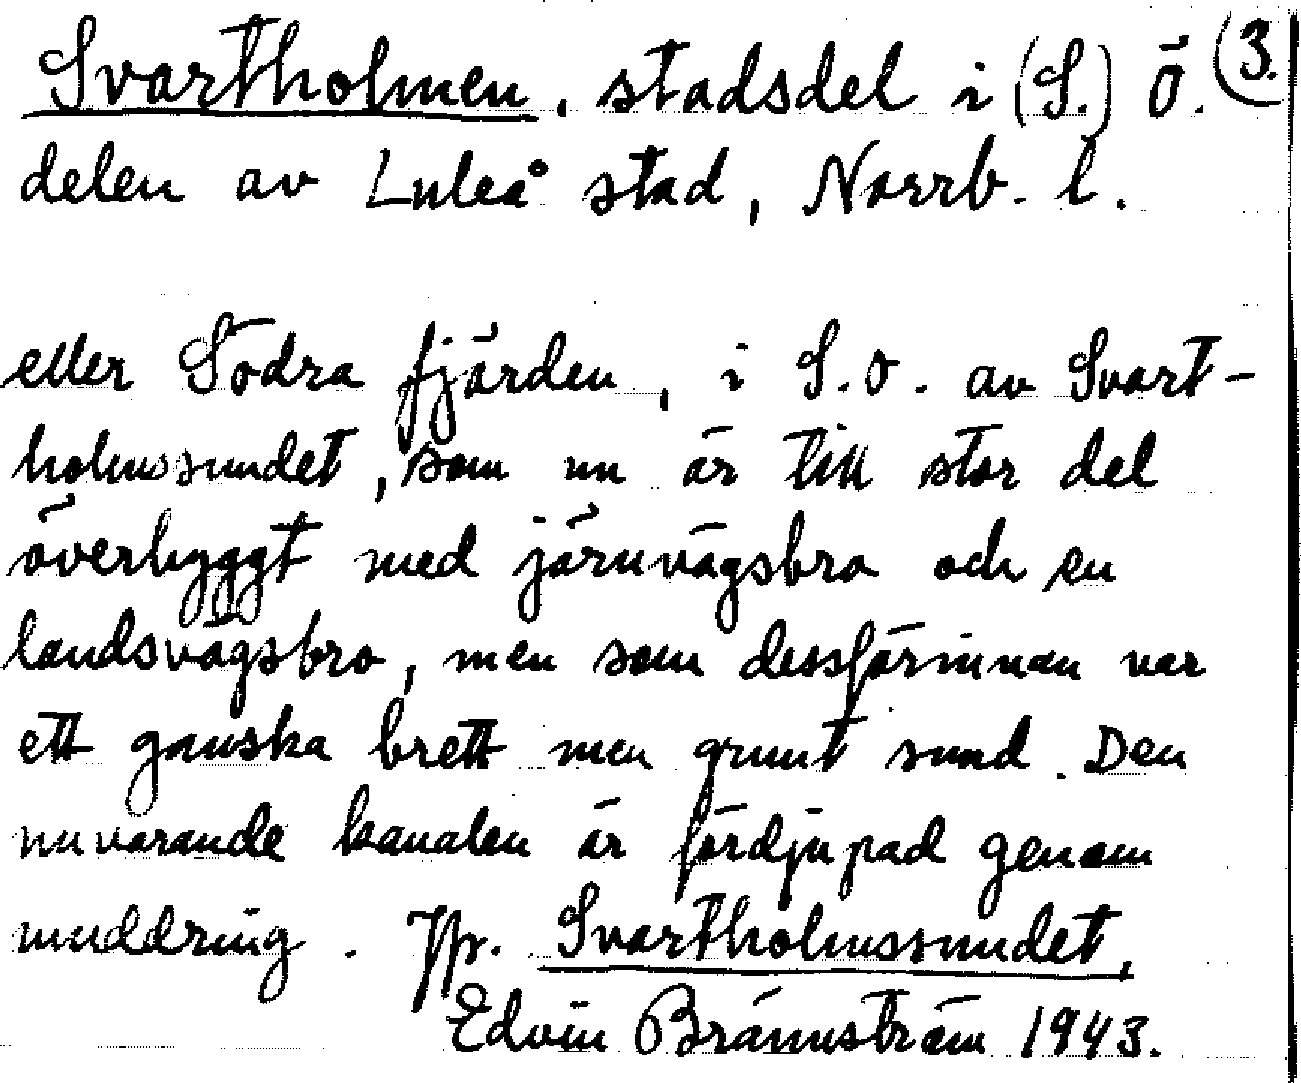 Svartholmen, stadsdel i (S.) Ö. (3.
delen av Luleå stad, Norrb. l.
eller Södra fjärden, i S.O. av Svart-
holmssundet, som nu är till stor del
överbyggt med järnvägsbro och en
landsvägsbro, men som dessförinnan var
ett ganska brett men grunt sund. Den
nuvarande kanalen är fördjupad genom
muddring. Jfr. Svartholmssundet,
Edvin Brännström 1943.